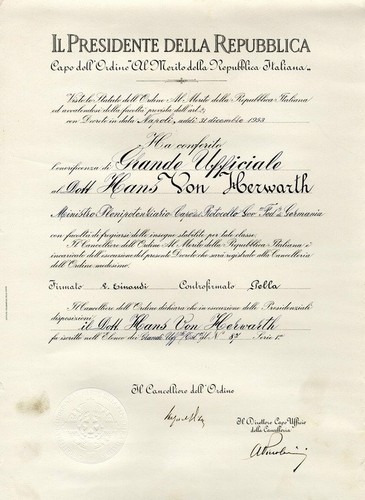 IL PRESIDENTE DELLA REPUBBLICA
Capo dell'Ordine "Al Merito della Repubblica Italiana"
Visto lo Statuto dell'Ordine Al Merito della Repubblica Italiana
ed avvalendosi della facoltà prevista dall'art.
con Decreto in data Napoli, addì 31 dicembre 1953
Ha conferito
l'onorificenza di Grande Ufficiale
al Dott Hans Von Herwarth
Ministro Plenipotenziario Capo del Protocollo Gov. Fed. Germania
con facoltà di fregiarsi delle insegne stabilite per tale classe.
Il Cancelliere dell'Ordine Al Merito della Repubblica Italiana è
incaricato dell'esecuzione del presente Decreto che sarà registrato alla Cancelleria
dell'Ordine medesimo.
Firmato L. Einaudi Controfirmato Pella
Il Cancelliere dell'Ordine dichiara che in esecuzione delle Presidenziali
disposizioni
il Dott Hans Von Herwarth
fu scritto nell'Elenco dei Grandi Uff. N. 87 Serie
Il Cancelliere dell'Ordine
Il Direttore Capo Ufficio
della Cancelleria